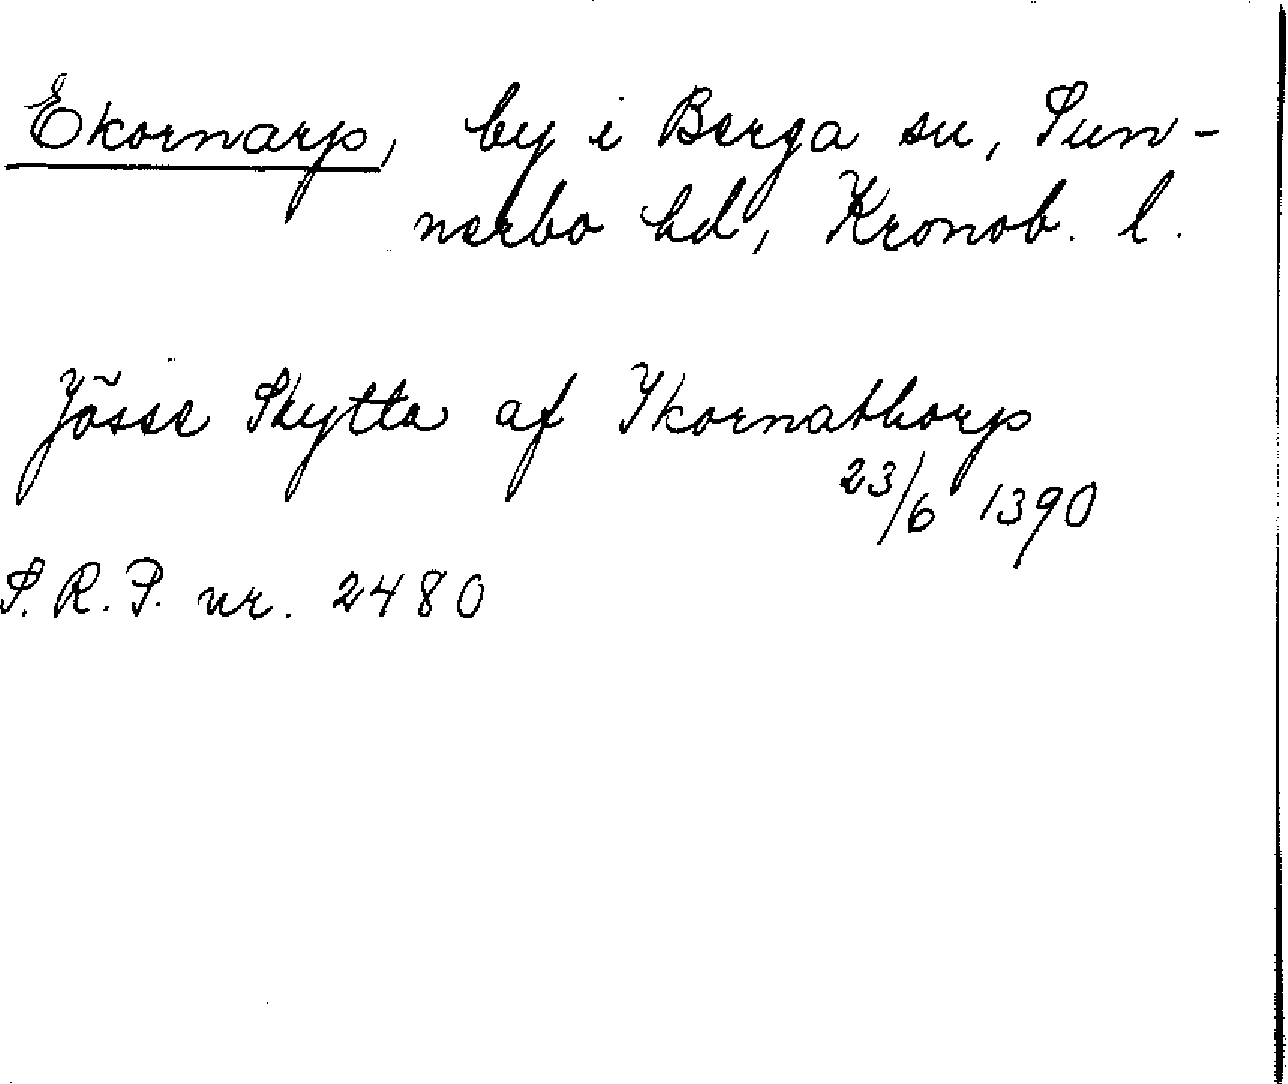 Ekornarp, by i Berga sn, Sun-
nerbo hd, Kronob. l.
Jösse Skytta af Ykornathorp
23/6 1390
S.R.P. nr. 2480